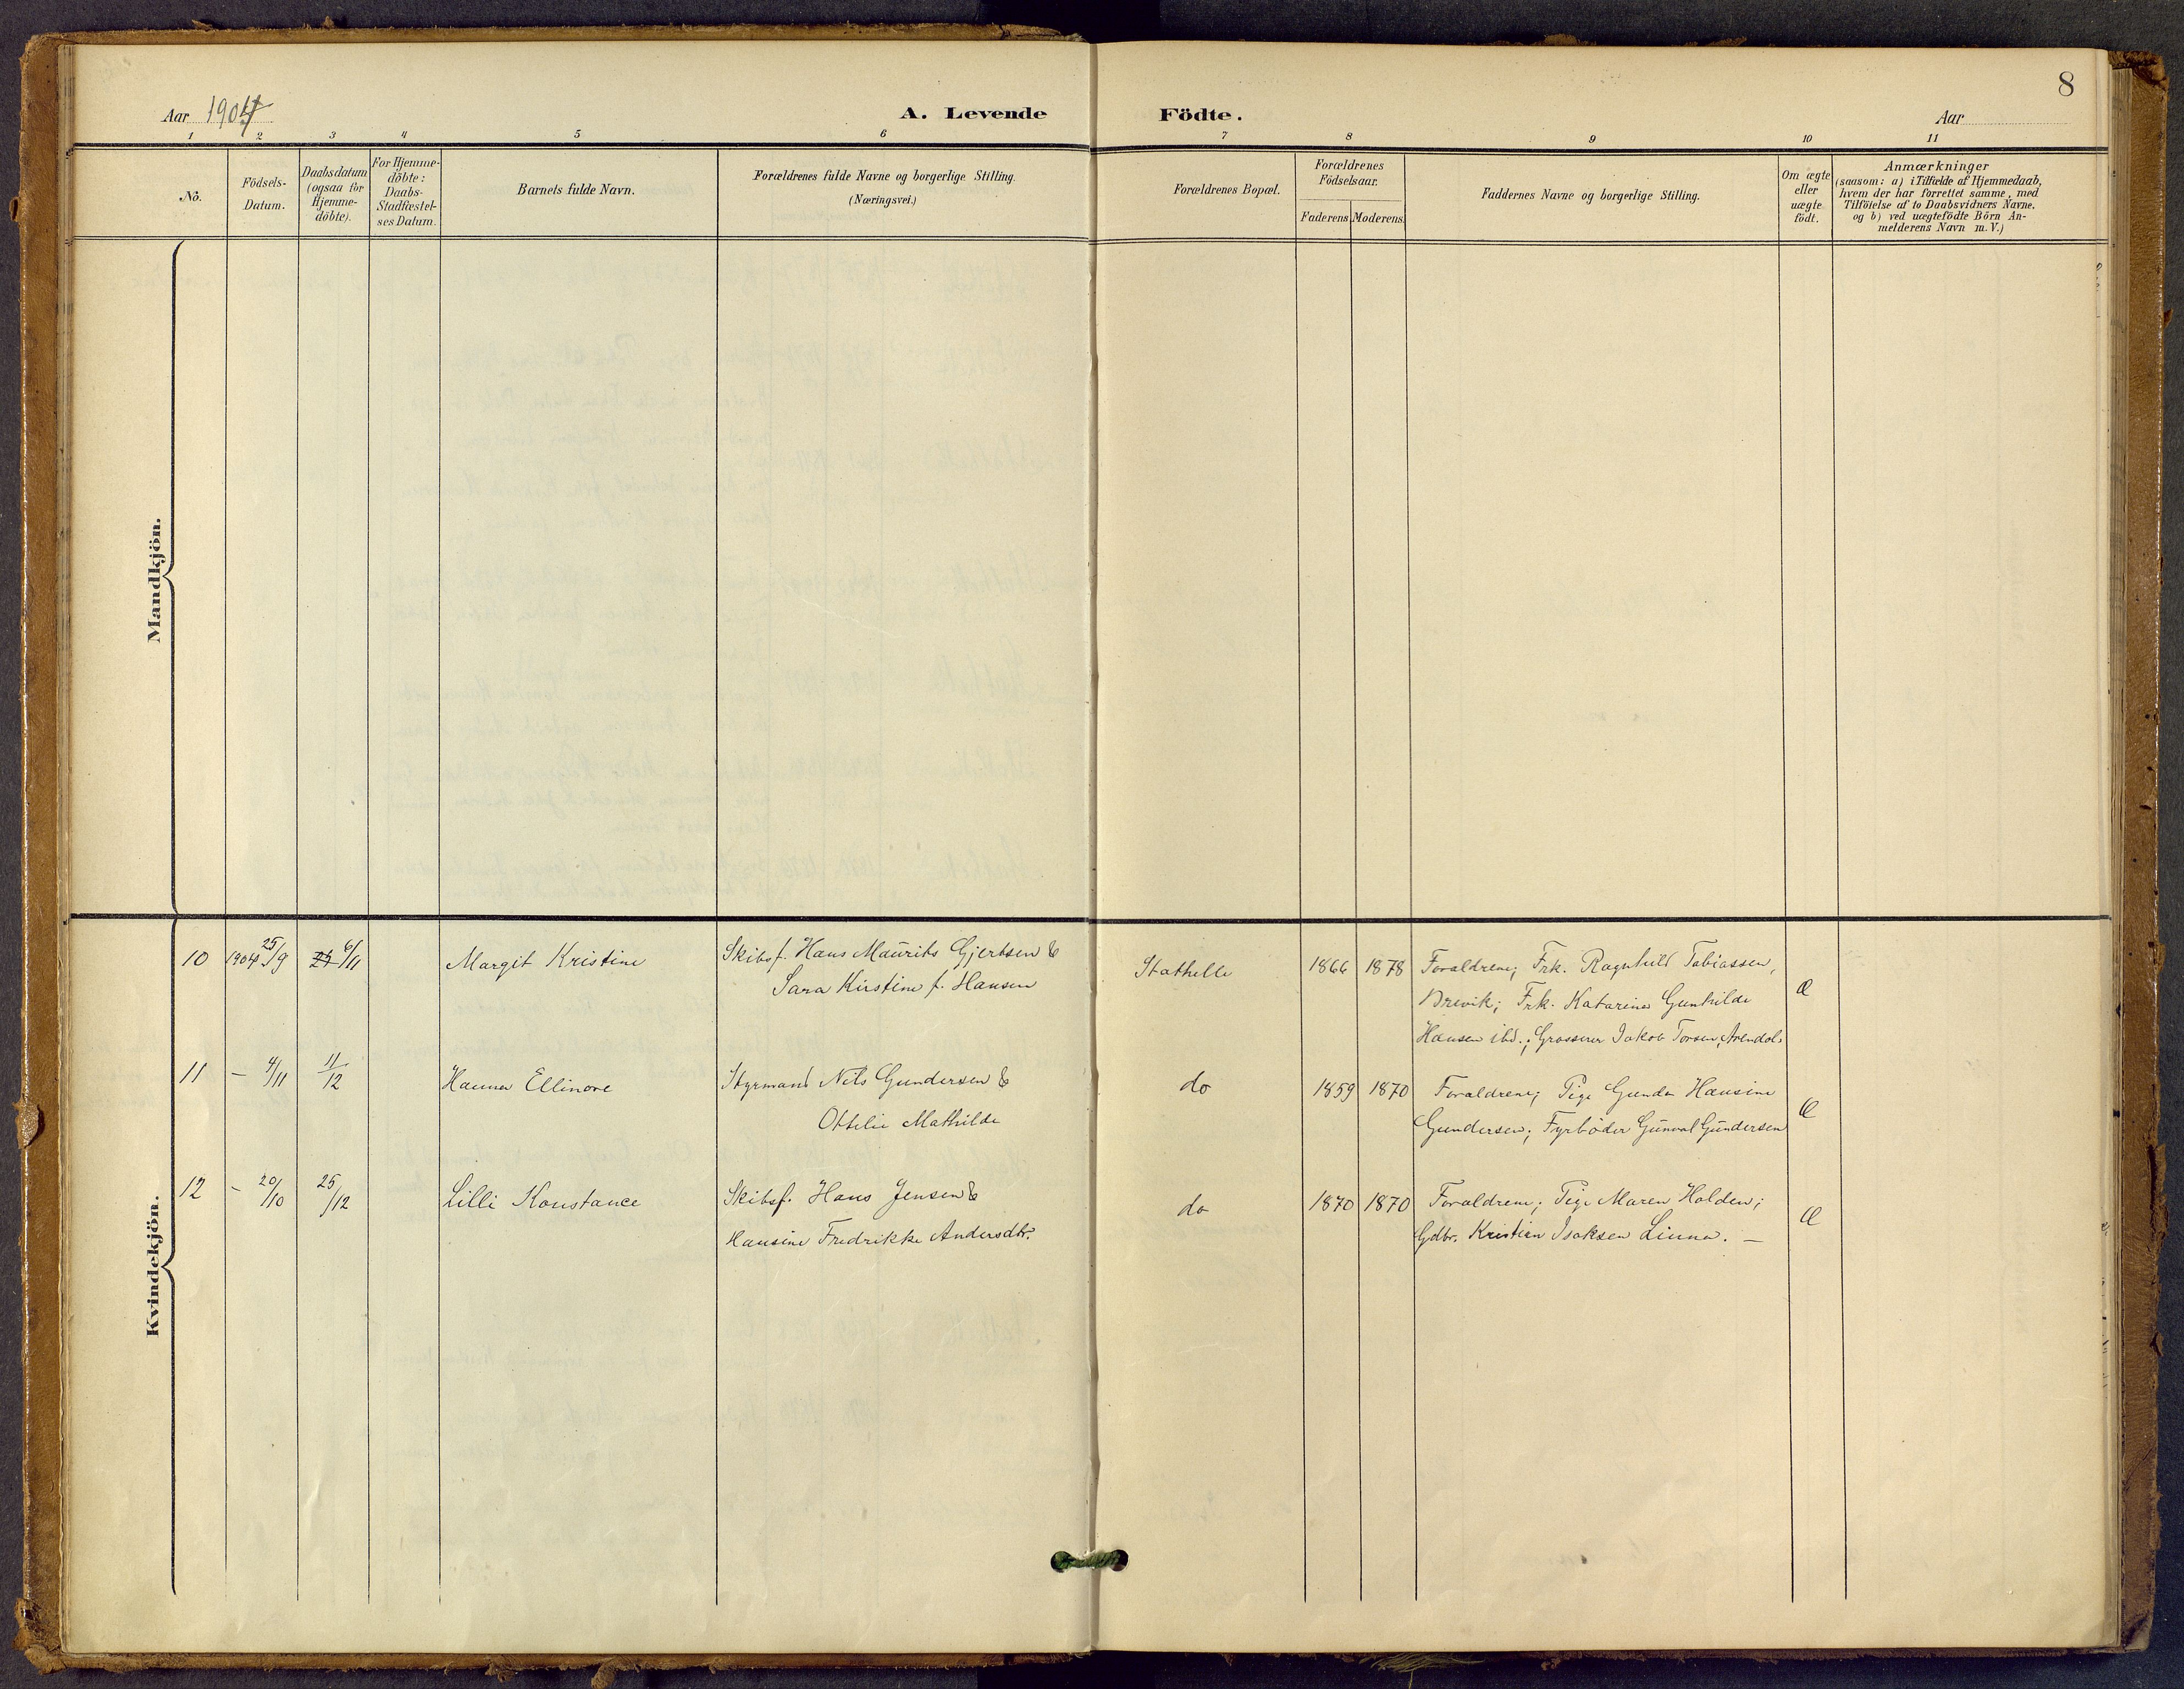 8
Aar 1904
A. Levende Födte.
Aar
1 2 3 4 5 6 7 8 9 10 11
No.
Födsels-
Datum.
Daabsdatum
(ogsaa for
Hjemme-
döbte).
For Hjemme-
döbte:
Daabs-
Stadfæstel-
ses Datum.
Barnets fulde Navn.
Forældrenes fulde Navne og borgerlige Stilling.
(Næringsvei.)
Forældrenes Bopæl.
Forældrenes
Födselsaar.
Faderens Moderens
Faddernes Navne og borgerlige Stilling.
Om ægte
eller
uægte
födt.
Anmærkninger
(saasom: a) i Tilfælde af Hjemmedaab,
hvem der har forrettet samme, med
Tilföielse af to Daabsvidners Navne.
og b) ved uægtefödte Börn An-
melderens Navn m. V.)
Mandkjön.
Kvindekjön.
10 1904 25/9 6/11 Margit Kristine Skibsf. Hans Maurits Gjertsen & Stathelle 1866 1878 Forældrene; Frk. Ragnhild Tobiassen,
Sara Kirstine f. Hansen Brevik; Frk. Katarina Gunhilde Æ
Hansen ibd.; Grosserer Jakob Torsen, Arendal.
11 – 4/11 11/12 Hanna Ellinore Styrmand Nils Gundersen & do 1859 1870 Forældrene; Pige Gunda Hansine
Ottilie Mathilde Gundersen; Fyrböder Gunval Gundersen Æ
12 – 20/10 25/12 Lilli Konstance Skibsf. Hans Jensen & do 1870 1870 Forældrene; Pige Maren Holden;
Hansine Fredrikke Andersdtr. Gdbr. Kristian Isaksen Linna. – Æ